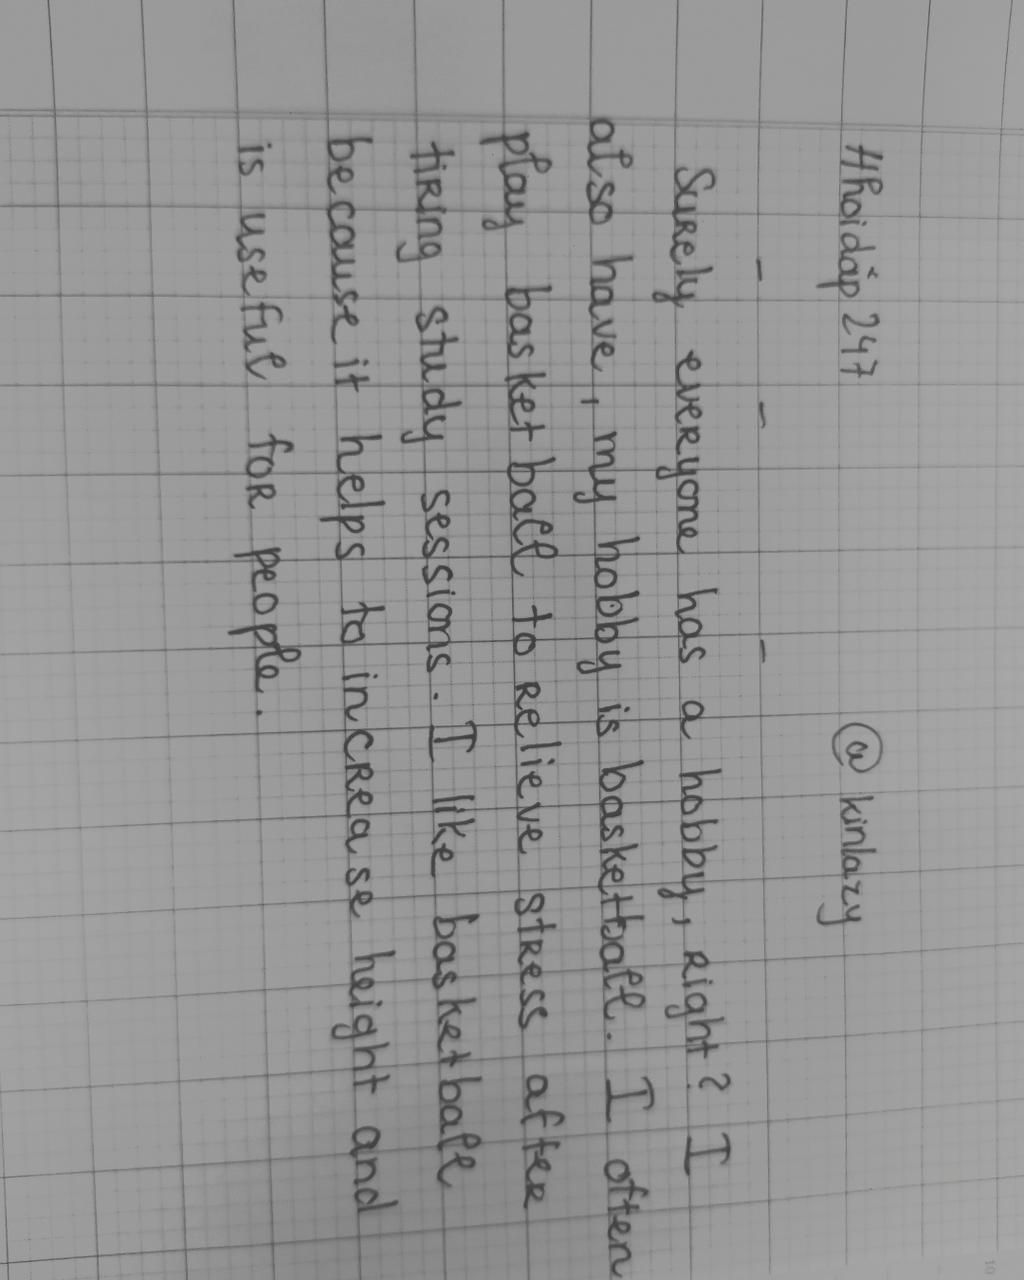 #hoidap247 @kinlazy
Surely everyone has a hobby, right? I
also have, my hobby is basketball. I often
play basketball to relieve stress after
tiring study sessions. I like basketball
because it helps to increase height and
is useful for people.